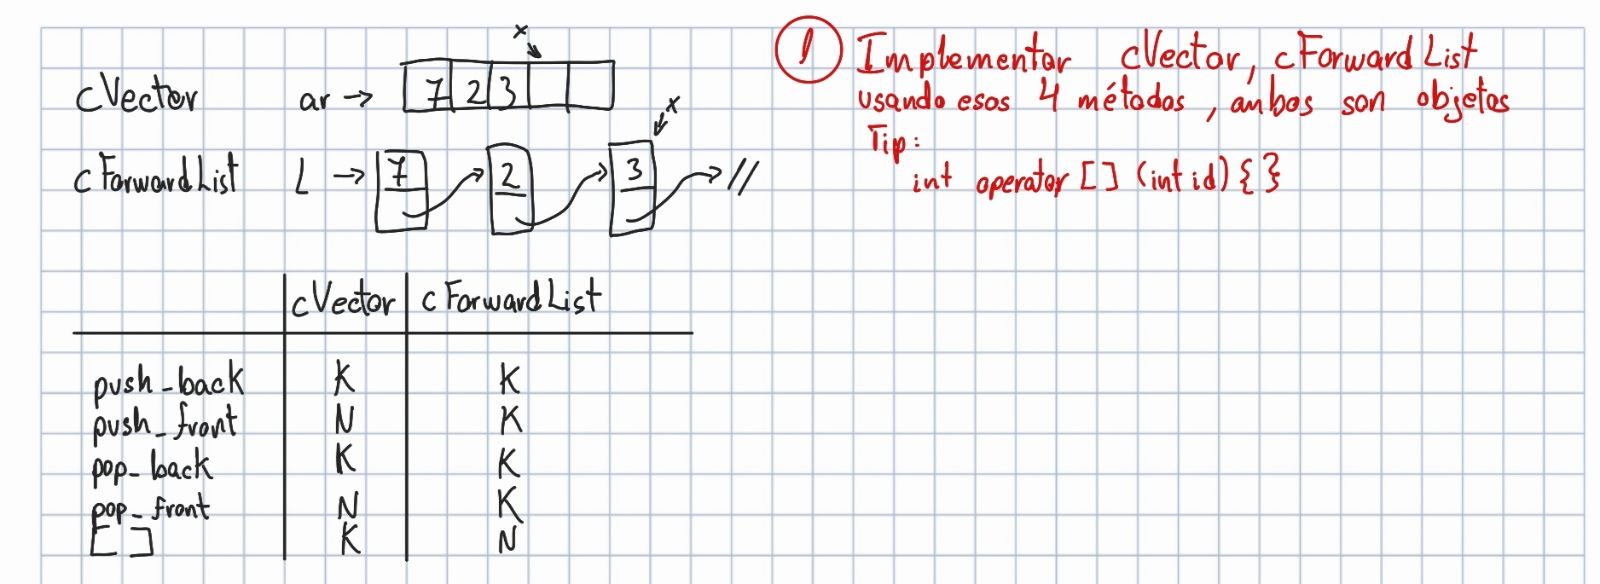 x
cVector ar → 7 2 3
x
cForwardList L → 7 2 3 //
cVector cForwardList
push_back K K
push_front N K
pop_back K K
pop_front N K
[ ] K N
1 Implementar cVector, cForwardList
usando esos 4 métodos, ambos son objetos
Tip:
int operator [ ] (int id) { }